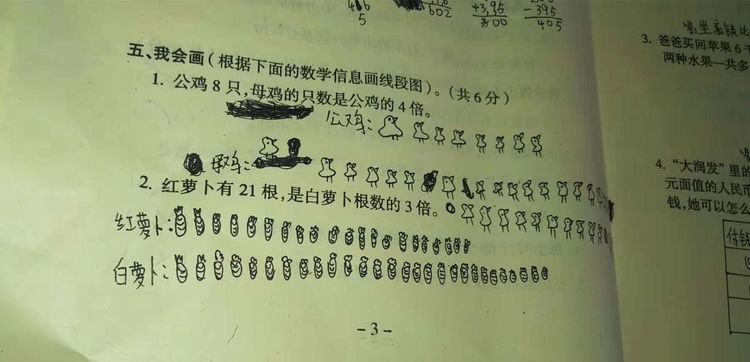 6
602
+3,95
800
- 395
405
5
五、我会画(根据下面的数学信息画线段图)。(共6分)
1. 公鸡8只,母鸡的只数是公鸡的4倍。
公鸡:
母鸡:
2. 红萝卜有21根,是白萝卜根数的3倍。
红萝卜:
白萝卜:
-3-
3. 爸爸买回苹果6千
两种水果一共多
4. “大润发”里的
元面值的人民币
钱,她可以怎么
付钱